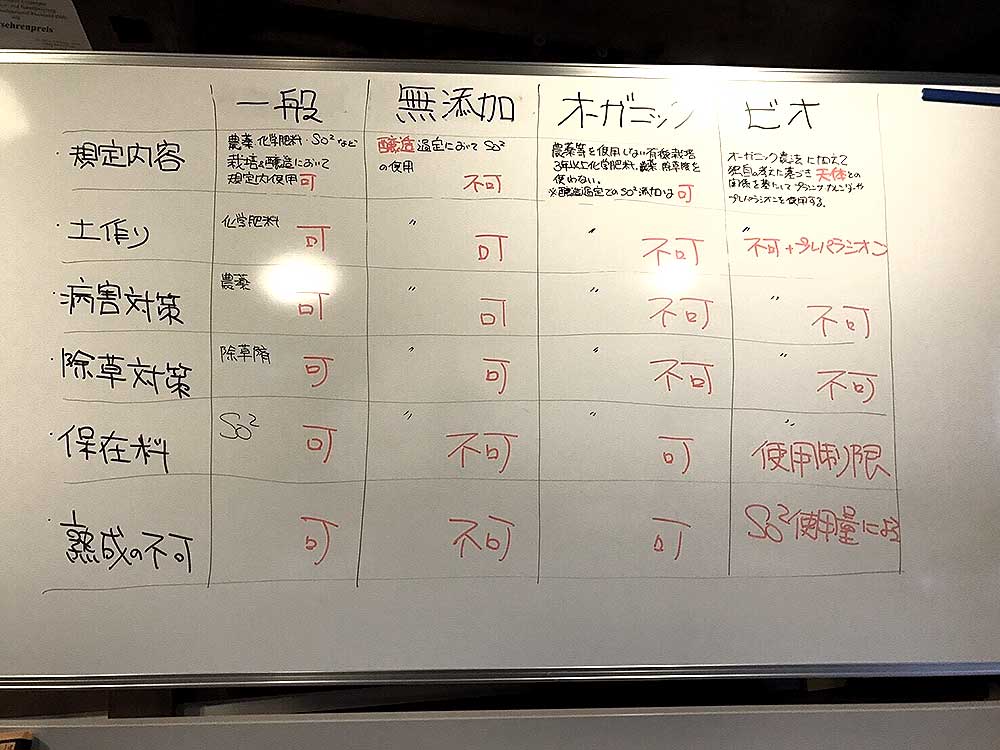 rsehrenpreis
一般 無添加 オーガニック ビオ
・規定内容
農薬・化学肥料・SO²など
栽培&醸造において
規定内使用可
醸造過定において SO²
の使用
不可
農薬等を使用しない有機栽培
3年以上化学肥料、農薬 除草剤を
使わない。
※醸造過定でのSO²添加は可
オーガニック農法に加えて
独自の考えに基づき 天体との
関係を基にしてプランツカレンダーや
プレパラシオンを使用する。
・土作り 化学肥料 可 〃 可 〃 不可 〃 不可+プレパラシオン
・病害対策 農薬 可 〃 可 〃 不可 〃 不可
・除草対策 除草剤 可 〃 可 〃 不可 〃 不可
・保在料 SO² 可 〃 不可 〃 可 〃 使用制限
・熟成の不可 可 不可 可 SO²使用量による